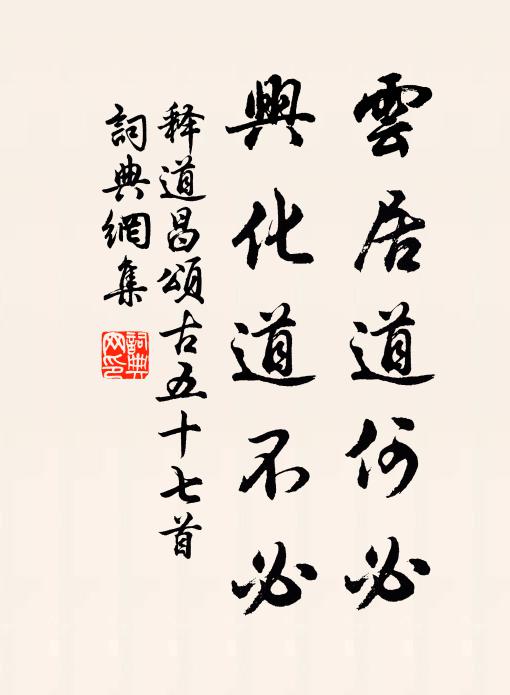 雲居道何必
興化道不必
释道昌頌古五十七首
詞典網集
詞典網印